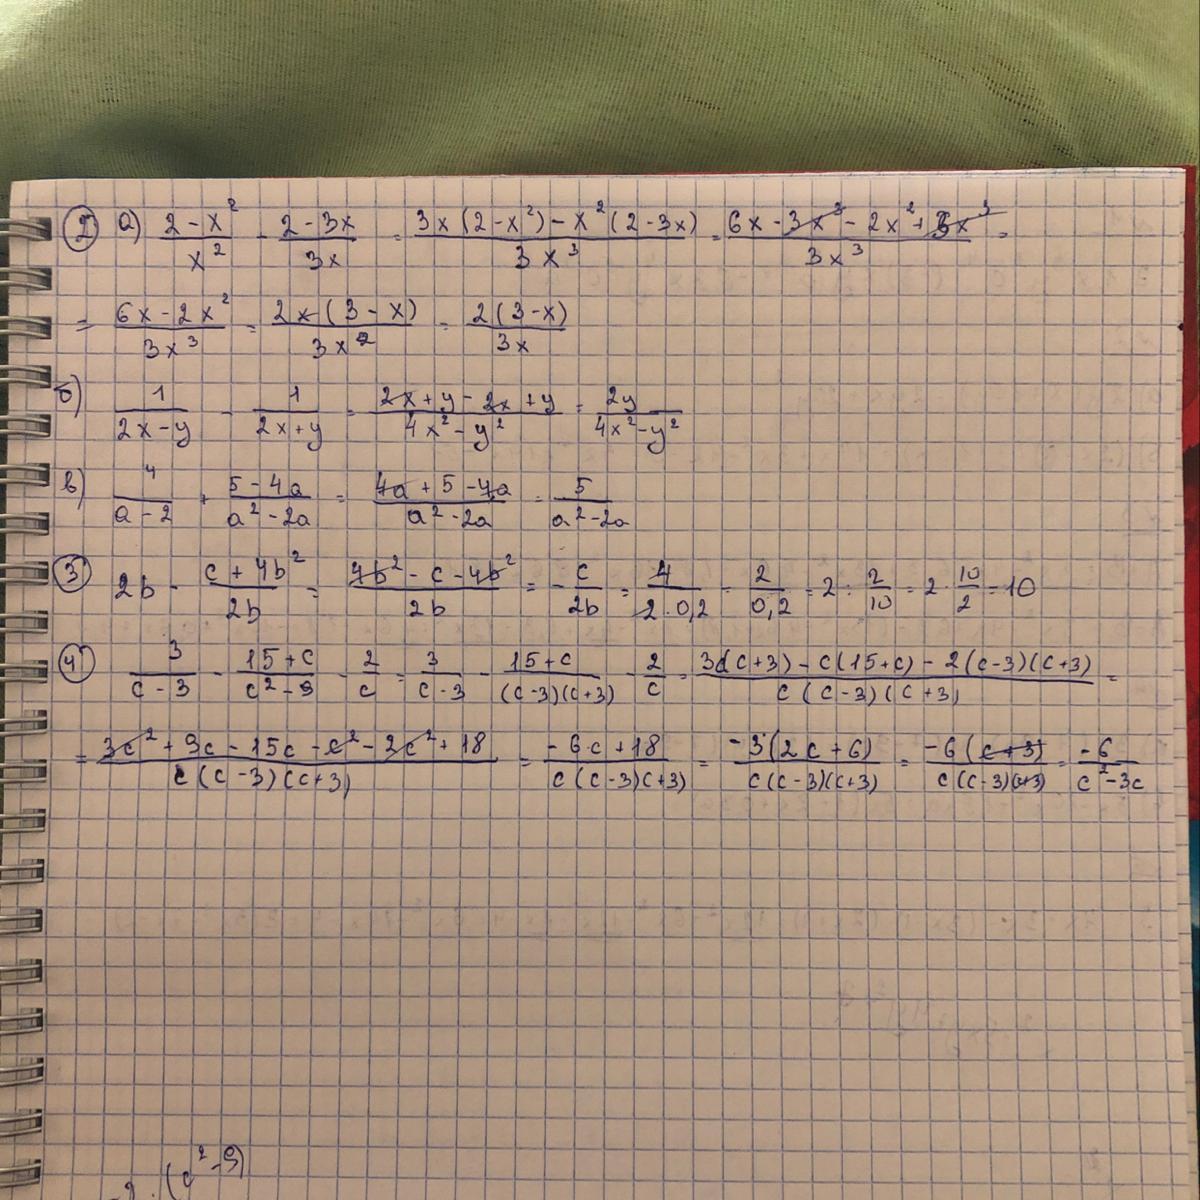 ② а) (2 - x²)/x² - (2 - 3x)/3x = (3x(2 - x²) - x²(2 - 3x))/3x³ = (6x - 3x³ - 2x² + 3x³)/3x³ =
= (6x - 2x²)/3x³ = (2x(3 - x))/3x² = (2(3 - x))/3x
б) 1/(2x - y) - 1/(2x + y) = (2x + y - 2x + y)/(4x² - y²) = 2y/(4x² - y²)
в) 4/(a - 2) + (5 - 4a)/(a² - 2a) = (4a + 5 - 4a)/(a² - 2a) = 5/(a² - 2a)
③ 2b - (c + 4b²)/2b = (4b² - c - 4b²)/2b = - c/2b = 4/(2 · 0,2) = 2/0,2 = 2 : 2/10 = 2 · 10/2 = 10
④ 3/(c - 3) - (15 + c)/(c² - 9) - 2/c = 3/(c - 3) - (15 + c)/((c - 3)(c + 3)) - 2/c = (3c(c + 3) - c(15 + c) - 2(c - 3)(c + 3))/(c(c - 3)(c + 3)) =
= (3c² + 9c - 15c - c² - 2c² + 18)/(c(c - 3)(c + 3)) = (-6c + 18)/(c(c - 3)(c + 3)) = (-3(2c + 6))/(c(c - 3)(c + 3)) = (-6(c + 3))/(c(c - 3)(c + 3)) = -6/(c² - 3c)
(c² - 9)